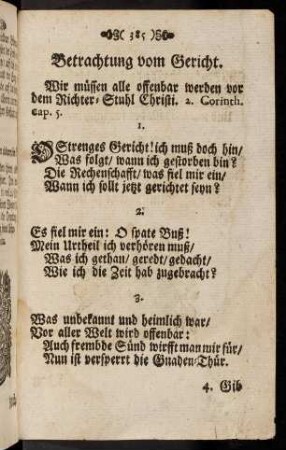 385
Betrachtung vom Gericht.
Wir müssen alle offenbar werden vor
dem Richter-Stuhl Christi. 2. Corinth.
cap. 5.
1.
O Strenges Gericht! ich muß doch hin/
Was folgt/ wann ich gestorben bin?
Die Rechenschafft/ was fiel mir ein/
Wann ich sollt jetzt gerichtet seyn?
2.
Es fiel mir ein: O spate Buß!
Mein Urtheil ich verhören muß/
Was ich gethan/ geredt/ gedacht/
Wie ich die Zeit hab zugebracht?
3.
Was unbekannt und heimlich war/
Vor aller Welt wird offenbar:
Auch frembde Sünd wirfft man mir für/
Nun ist versperrt die Gnaden-Thür.
4. Gib